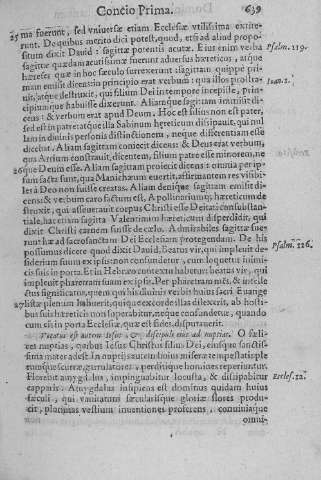 Concio Prima. 639
25 ma fuerunt, sed vniuersæ etiam Ecclesiæ vtilissima extite-
runt. De quibus merito dici potest, quod, etsi ad aliud propo-
situm dixit Dauid: sagittæ potentis acutæ. Eius enim verba Psalm. 119.
sagittæ quædam acutissimæ fuerunt aduersus hæreticos, atque
hæreses quæ in hoc sæculo surrexerunt sagittam quippe pri-
mam emisit dicens: in principio erat verbum: qua illos prostra- Ioan. 1.
uit, atque destruxit, qui filium Dei in tempore incepisse, prin-
cipiumque habuisse dixerunt. Aliamque sagittam immisit di-
cens: & verbum erat apud Deum. Hoc est filius non est pater,
sed est in patre atque illa Sabinum hæreticum dissipauit, qui nul-
lam in diuinis personis distinctionem, neque differentiam esse
dicebat. Aliam sagittam coniecit dicens: & Deus erat verbum,
qua Arrium construxit, dicentem, filium patre esse minorem, ne
26 que Deum esse. Aliam sagittam proiecit dicens: omnia per ip-
sum facta sunt, qua Manichæum euertit, affirmantem res visibi-
les à Deo non fuisse creatas. Aliam denique sagittam emisit di-
cens: & verbum caro factum est, Apollinarium hæreticum de
struxit, qui asseuerauit corpus Christi esse Deitati consubstan-
tiale, hac etiam sagitta Valentinum hæreticum disperdidit, qui
dixit Christi carnem fuisse de cælo. Admirabiles sagittæ fue-
runt hæ ad sacrosanctam Dei Ecclesiam protegendam. De his
possumus dicere quod dixit Dauid, Beatus vir, qui impleuit de- Psalm. 126.
siderium suum ex ipsis: non confundetur, cum loquetur inimi-
cis suis in porta. Et in Hebræo contextu habetur: beatus vir, qui
impleuit pharetram suam ex ipsis. Per pharetram mens, & intelle
ctus significatur, quem qui his diuinis verbis huius sacri Euange
27 listæ plenum habuerit, quique ex corde illas dilexerit, ab hosti-
bus suis hæreticis non superabitur, neque confundetur, quando
cum eis in porta Ecclesiæ, quæ est fides, disputauerit.
Vocatus est autem Iesus & discipuli eius ad nuptias. O fæli-
ces nuptias, quibus Iesus Christus filius Dei, eiusque sanctis-
sima mater adest. In nuptijs autem huius miseræ tempestatis ple
rumque scurræ, gurgulatores, perditique homines reperiuntur.
Florebit amygdalus, impinguabitur locusta, & dissipabitur Eccles. 12.
capparis. Amygdalus insipiens est dominus quidam huius
sæculi, qui vanitatum sæcularisque gloriæ flores produ-
cit, plurimas vestium inuentiones proferens, conuiuiaque
omni-